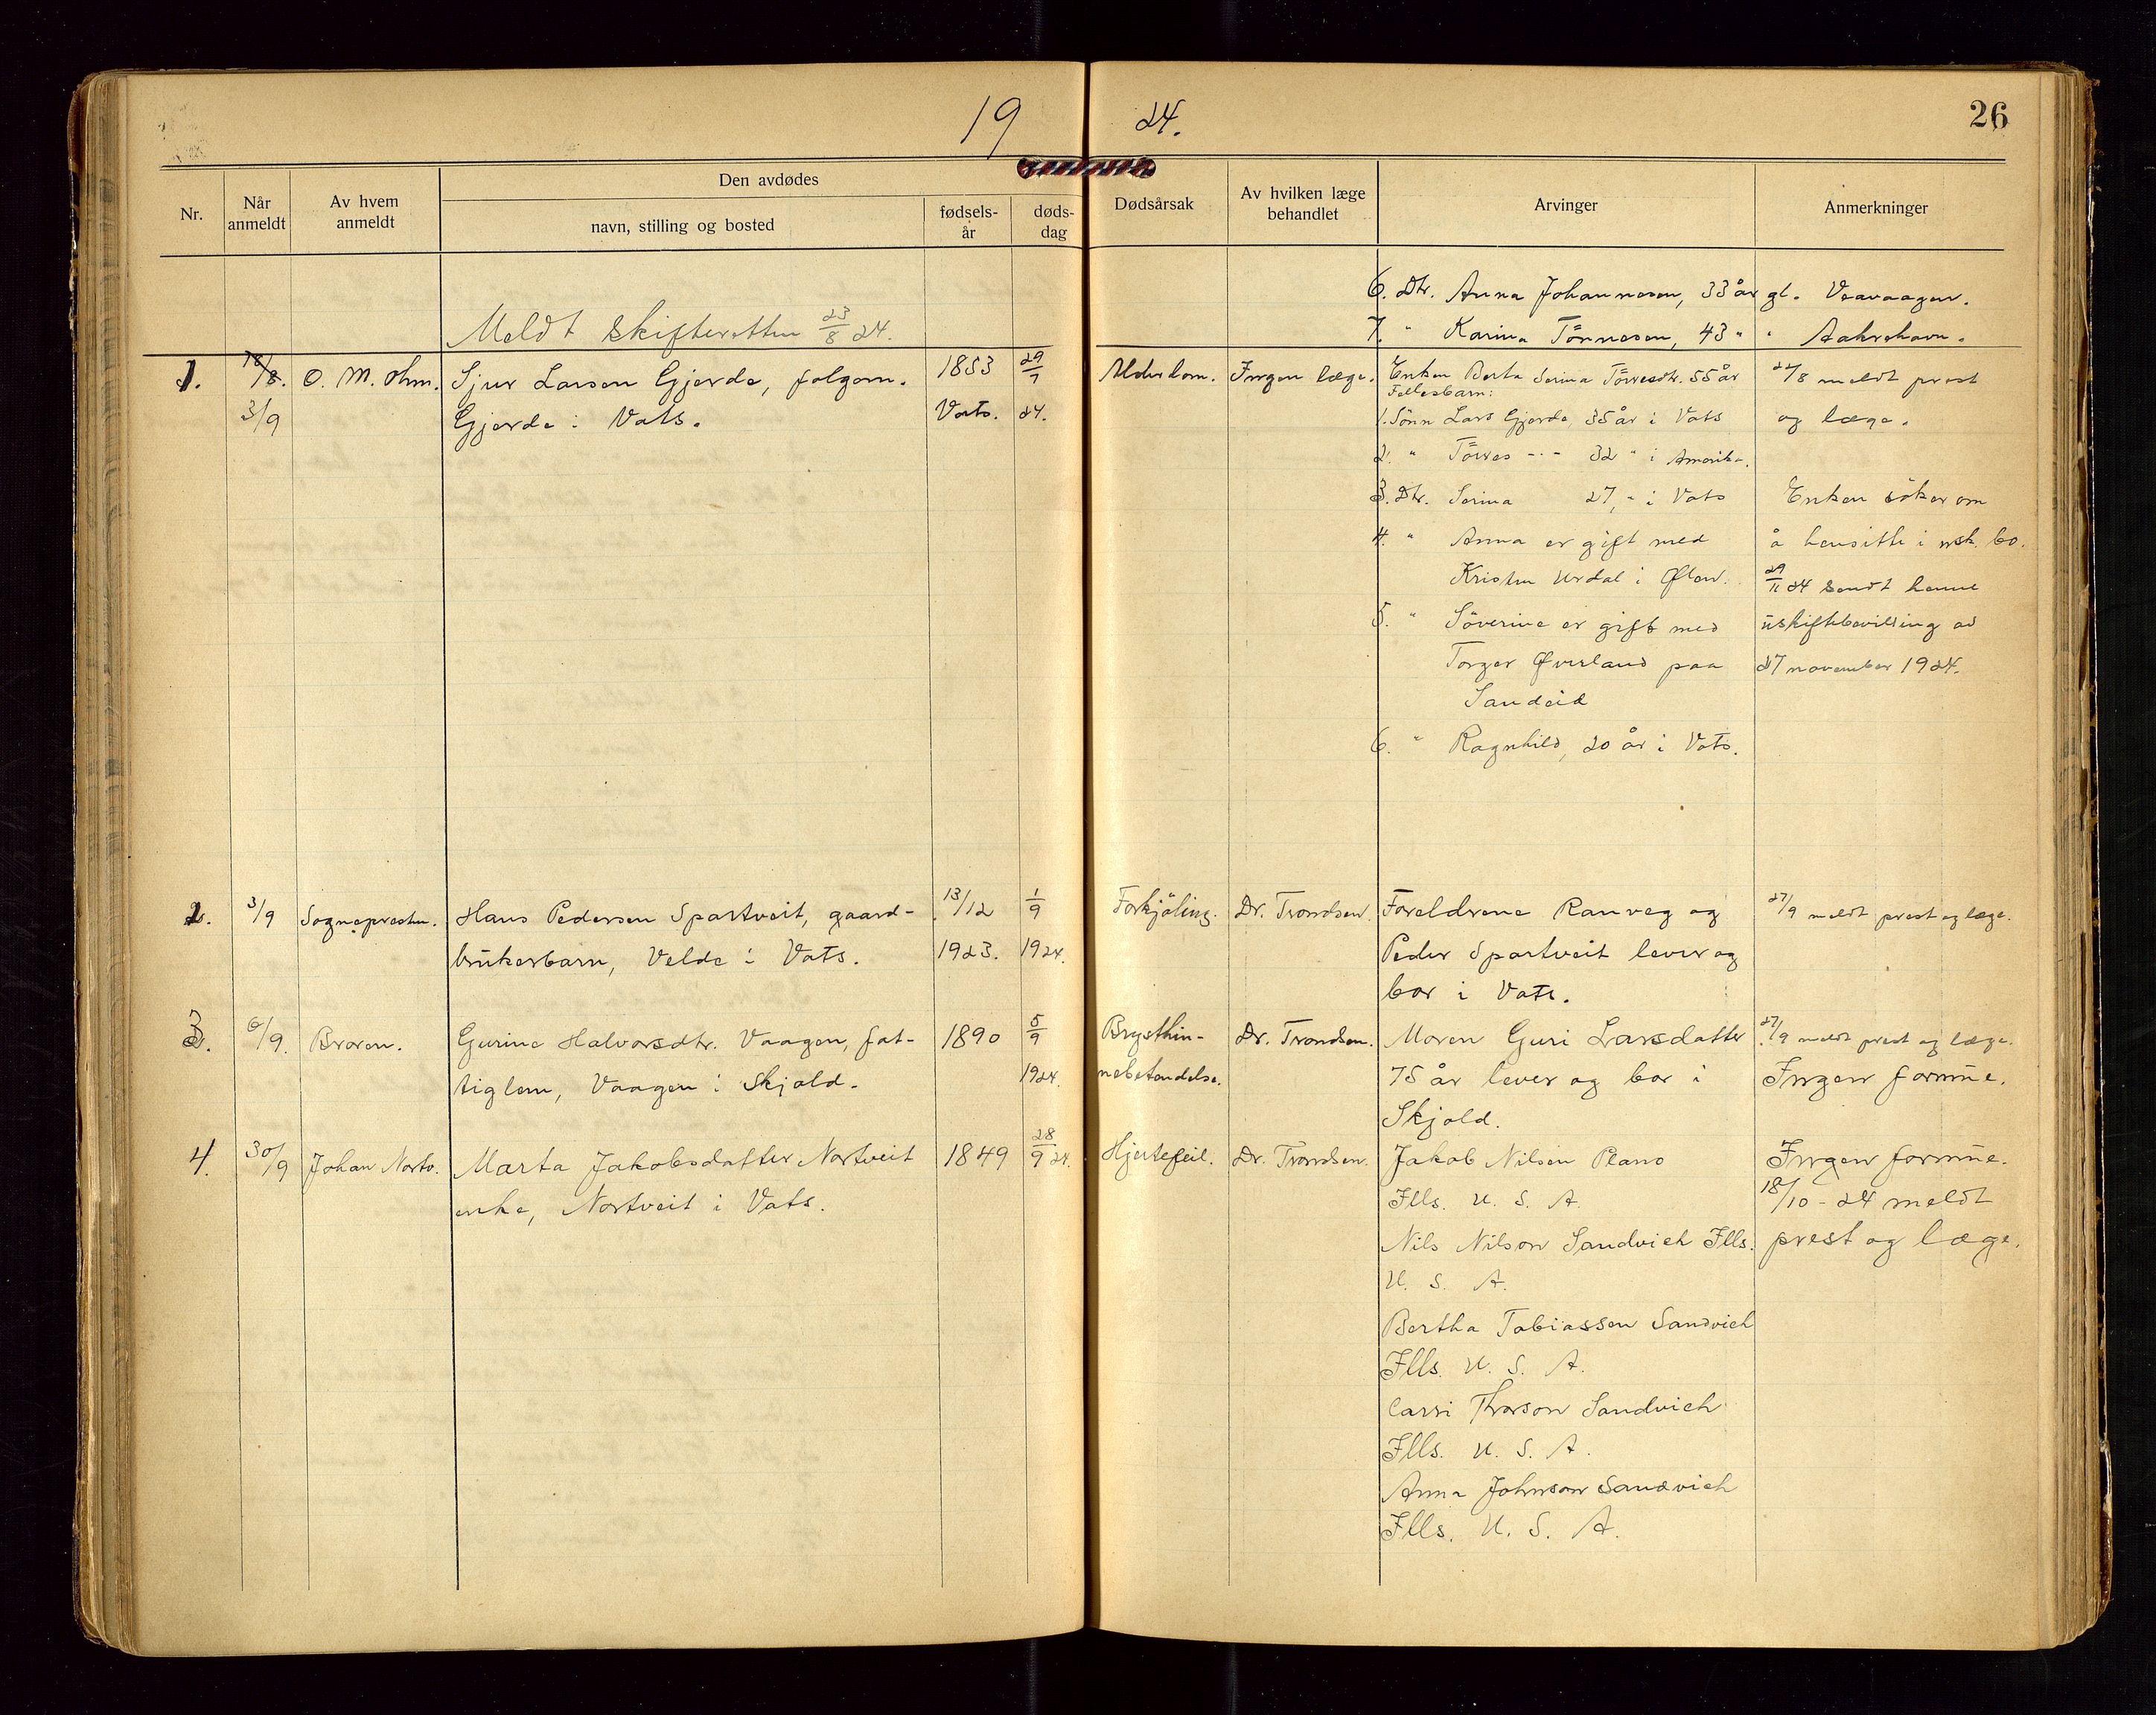 19 24.
26
Nr.
Når anmeldt
Av hvem anmeldt
Den avdødes
navn, stilling og bosted
fødsels-år
døds-dag
Dødsårsak
Av hvilken læge behandlet
Arvinger
Anmerkninger
6. Dtr. Anna Johannesen, 33 år gl. Veavaagen.
7. " Karina Tönnesen, 43 " " Aakrehavn.
Meldt skifteretten 23/8 24.
1.
18/8.
3/9
O. M. Ohm.
Sjur Larsen Gjerde, folgem.
Gjerde i Vats.
1853
Vats.
29/7
24.
Alderdom.
Ingen læge.
Enken Berta Serina Törresdtr. 55 år
Fellesbarn:
1. Sönn Lars Gjerde, 35 år i Vats
2. " Törres -"- 32 " i Amerika.
3. Dtr. Serina 27, " i Vats
4. " Anna er gift med
Kristen Urdal i Ølen.
5. " Söverine er gift med
Torger Øverland paa
Sandeid
6. " Ragnhild, 20 år i Vats.
27/8 meldt prest
og læge.
Enken söker om
å hensitte i usk. bo.
29/11 24 sendt henne
uskiftebevilling av
27 november 1924.
2.
3/9
Sognepresten.
Hans Pedersen Spartveit, gaard-
brukerbarn, Velde i Vats.
13/12
1923.
1/9
1924.
Forkjöling.
Dr. Trondsen.
Foreldrene Ranveg og
Peder Spartveit lever og
bor i Vats.
27/9 meldt prest og læge.
3.
6/9.
Broren.
Gurine Halvorsdtr. Vaagen, fat-
tiglem, Vaagen i Skjold.
1890
5/9
1924.
Brysthin-
nebetendelse.
Dr. Trondsen.
Moren Guri Larsdatter
75 år lever og bor i
Skjold.
27/9 meldt prest og læge.
Ingen formue.
4.
30/9
Johan Nortv.
Marta Jakobsdatter Nortveit
enke, Nortveit i Vats.
1849
28/9 24.
Hjertefeil.
Dr. Trondsen.
Jakob Nilsen Plano
Ills. U. S. A.
Nils Nilson Sandvich Ills.
U. S. A.
Bertha Tobiassen Sandvich
Ills. U. S. A.
Carri Thorson Sandvich
Ills. U. S. A.
Anna Johnson Sandvich
Ills. U. S. A.
Ingen formue.
18/10 - 24 meldt
prest og læge.